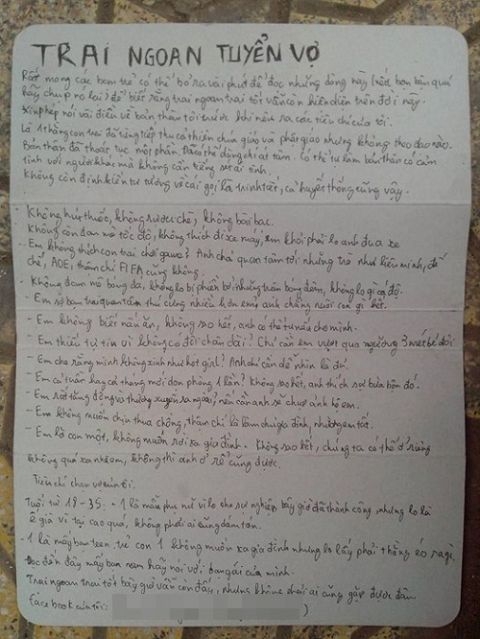 TRAI NGOAN TUYỂN VỢ
Rất mong các bạn trẻ có thể bỏ ra vài phút để đọc những dòng này (nếu bạn bận quá
hãy chụp nó lại) để biết rằng trai ngoan trai tốt vẫn còn hiện diện trên đời này.
Xin phép nói vài điều về bản thân tôi trước khi nêu ra các tiêu chí của tôi.
Là 1 thằng con trai đã từng tiếp thu cả thiên chúa giáo và phật giáo nhưng không theo đạo nào.
Bản thân đã thoát tục một phần. Có thể tự làm bản thân có cảm
tình với người khác mà không cần tiếng sét ái tình.
Không còn định kiến tư tưởng về cái gọi là trinh tiết, cả huyết thống cũng vậy.
- Không hút thuốc, không rượu chè, không bài bạc.
Không còn đam mê tốc độ, không thích đi xe máy, em khỏi phải lo anh đua xe
- Em không thích con trai chơi game? Anh chả quan tâm tới những trò như liên minh, đế
chế, AOE, thậm chí FIFA cũng không.
- Không đam mê bóng đá, không lo bị phản bội những trận bóng đêm, không lo gì cá độ.
- Em sợ bạn trai quan tâm thú cưng nhiều hơn em? anh chẳng nuôi con gì hết.
- Em không biết nấu ăn, không sao hết, anh có thể tự nấu cho mình.
- Em thiếu tự tin vì không có đôi chân dài? Chỉ cần em vượt qua ngưỡng 3 mét bẻ đôi
- Em cho rằng mình không xinh như hot girl? Anh chỉ cần dễ nhìn là đủ.
- Em cả tuần hay cả tháng mới dọn phòng 1 lần? Không sao hết, anh thích sự bừa bộn đó.
- Em rớt từng đồng và thường xuyên ra ngoài, nếu cần anh sẽ chụp ảnh hộ em.
- Em không muốn chịu thua chồng, thậm chí là làm chủ gia đình, nhường em tất.
- Em là con một, không muốn rời xa gia đình. Không sao hết, chúng ta có thể ở riêng
không quá xa nhà em, không thì anh ở rể cũng được.
Tiêu chí chọn vợ của tôi.
Tuổi từ 18 - 35. - 1 là mấy phụ nữ vì lo cho sự nghiệp bây giờ đã thành công nhưng lo là
ế già vì tại cao quá, không phải ai cũng dám tán.
- 1 là mấy bạn teen, trẻ con 1 không muốn xa gia đình nhưng lo lấy phải thằng éo ra gì.
Đọc đến đây mấy bạn nam hãy nói với bạn gái của mình.
Trai ngoan trai tốt bây giờ vẫn còn đấy, nhưng không phải ai cũng gặp được đâu
Facebook của tôi: )